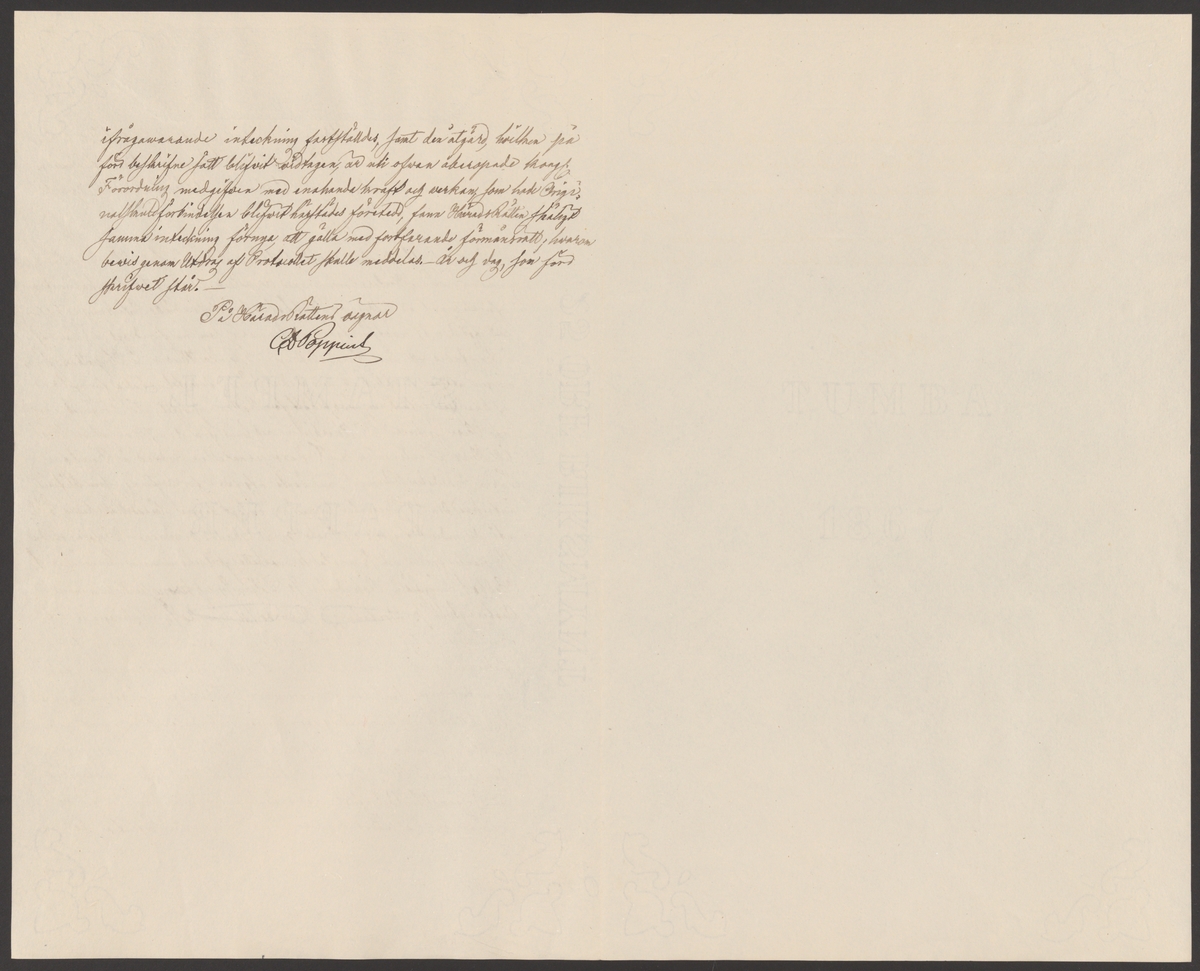 ifrågawarande inteckning fastställdes, samt den åtgärd, hvilken på
förebeskrifne sätt blifvit widtagen, är uti ofvan åberopade Kongl.
Förordning medgifven med enahanda kraft och verkan, som hade Origi-
nalskuldförbindelsen blifvit härstädes företedd, fann HäradsRätten skäligt
samma inteckning förnya, att gälla med fortfarande förmånsrätt, hvarom
bewis genom Utdrag af Protocollet skulle meddelas. – År och dag, som förr
skrifvet står. —
På HäradsRättens vägnar
Poppius